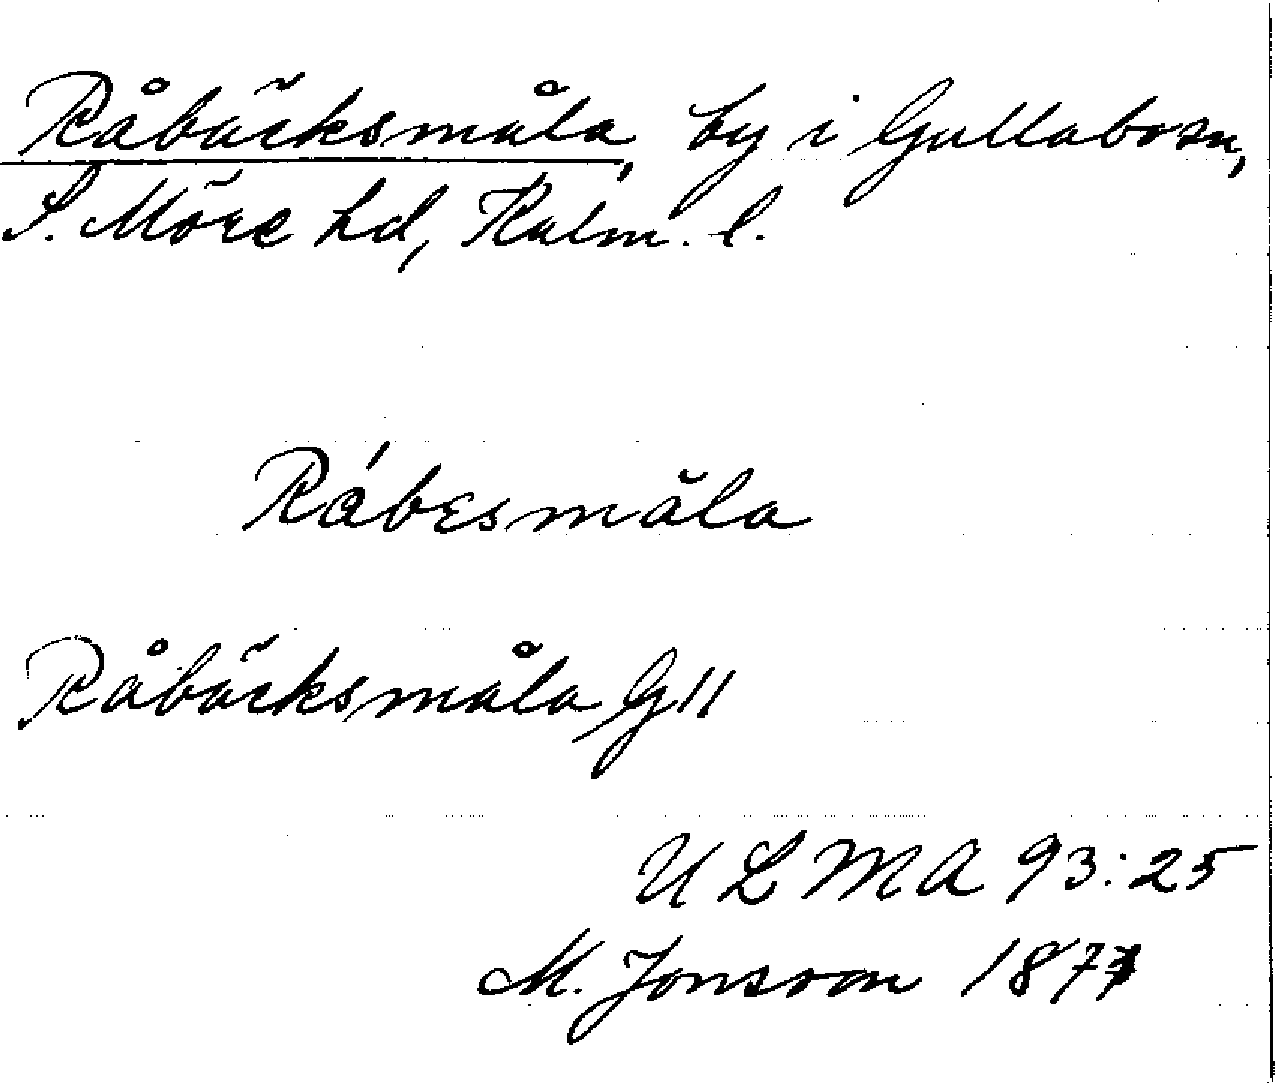 Råbäcksmåla, by i Gullabo sn,
S. Möre hd, Kalm. l.
Råbesmåla
Råbäcksmåla G11
ULMA 93:25
M. Jonsson